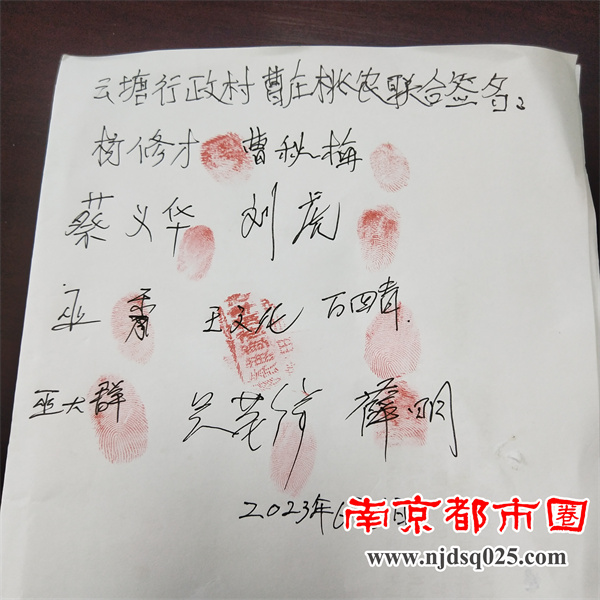 云塘行政村曹庄桃农联合签名:
杨修才 曹秋梅
蔡义华 刘虎
巫勇 王文化
巫大群 薛明
2023年6月
南京都市圈
www.njdsq025.com